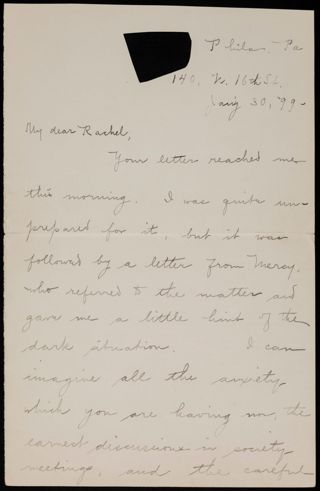 Phila. Pa
140. N. 16th St.
Jan'y 30, '99-
My dear Rachel,
Your letter reached me
this morning. I was quite un-
prepared for it, but it was
followed by a letter from Mercy,
who referred to the matter and
gave me a little hint of the
dark situation. I can
imagine all the anxiety
which you are having now, the
earnest discussions in society
meetings, and the careful-